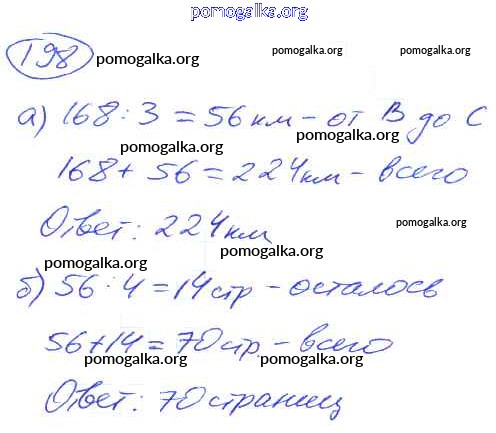 pomogalka.org
198 pomogalka.org pomogalka.org
а) 168 : 3 = 56 км - от В до С
pomogalka.org pomogalka.org
168 + 56 = 224 км - всего
Ответ: 224 км pomogalka.org
pomogalka.org pomogalka.org
б) 56 : 4 = 14 стр - осталось
56 + 14 = 70 стр - всего
pomogalka.org pomogalka.org
Ответ: 70 страниц